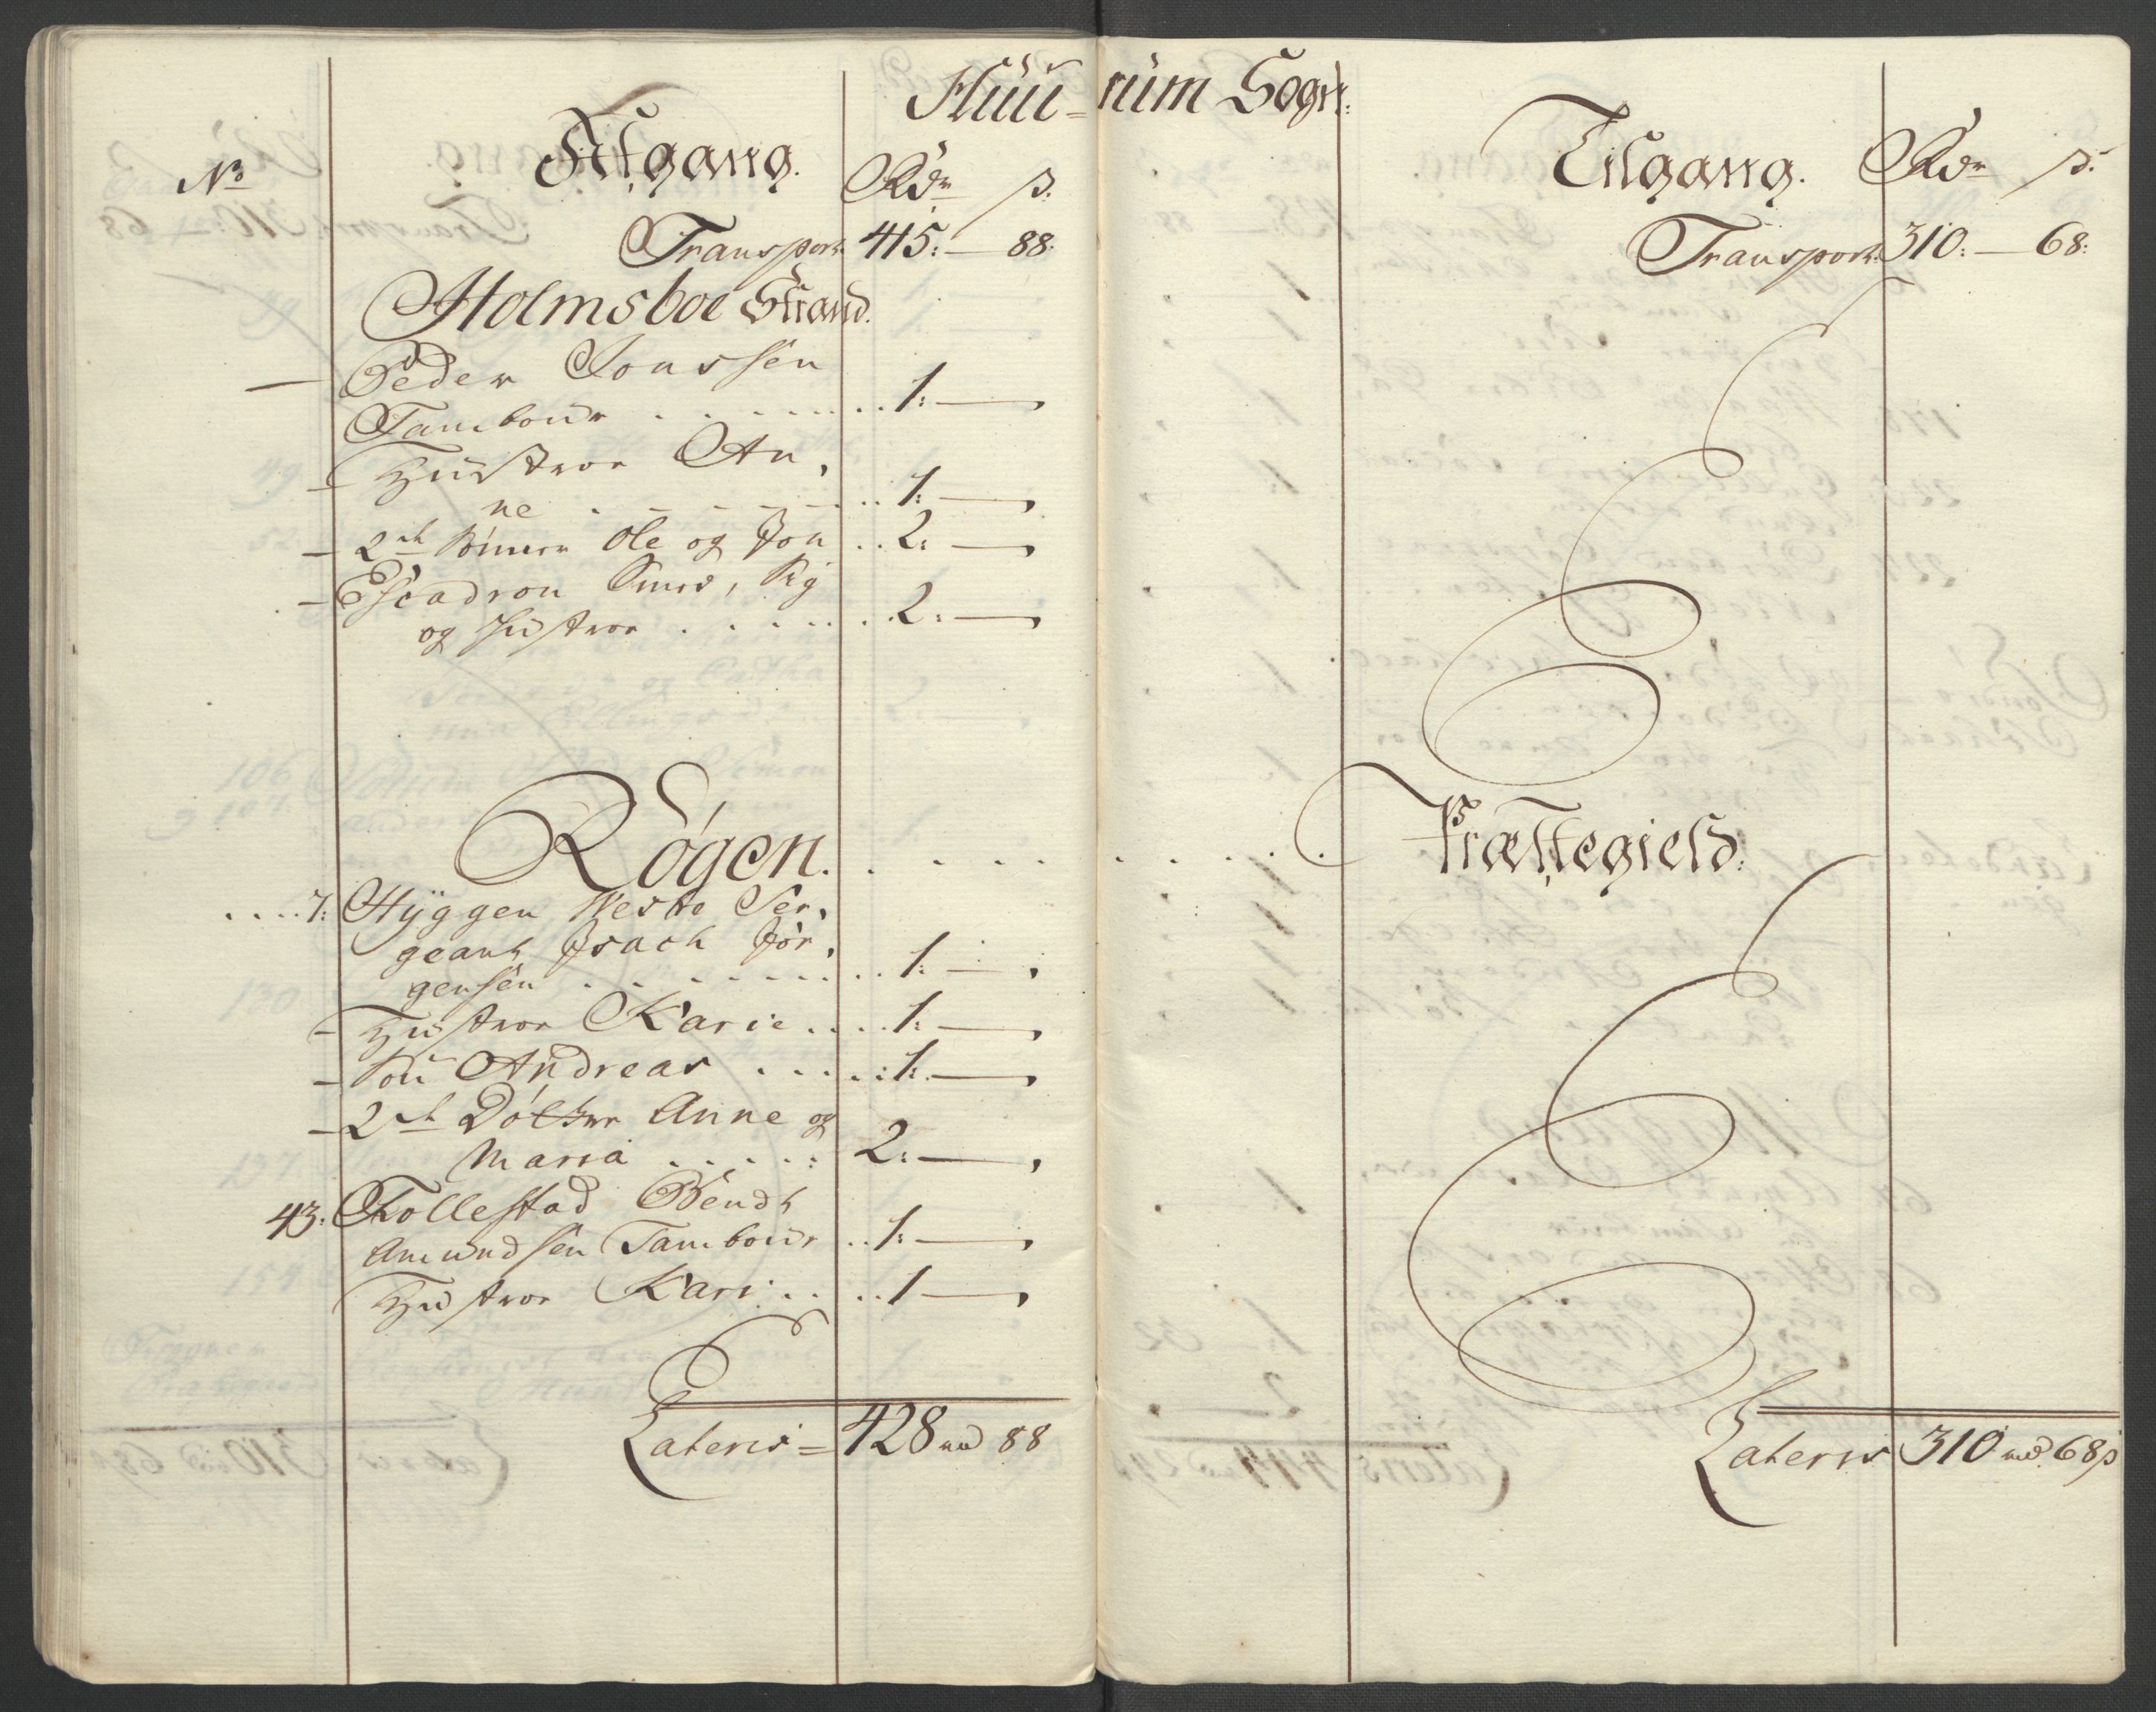 Huu-rum Sogn:
No
Afgang.
Rdr
s:
Transport
415:
88:
Holmsboe Strand.
Peder Jonssen
Tambour . . . . . . . . 1:
– Hustroe An,
ne . – – – – . . 1:
– 2de Börnn Ole og Jon . . 2:
– Escadron Smed,
og Hustroe . . . . . . . 2:
Rögen. . . . . . . . .
. . . . 7: Hÿggen Westre Ser,
geant Isach Jör,
gensen . . . . . . . . 1:
– Hustroe Karie . . . . 1:
– Søn Andreas . . . . . . 1:
– 2de Døttre Anne og
Maria . . . . . : 2:
43: Follestad Bendt
Amundsen Tambour . . 1:
Hustroe Kari . . . . 1
Lateris = 428 rd 88
Tilgang.
Rdr
s:
Transport:
310:
68:
Præstegield:
Lateris 310 rd 68s